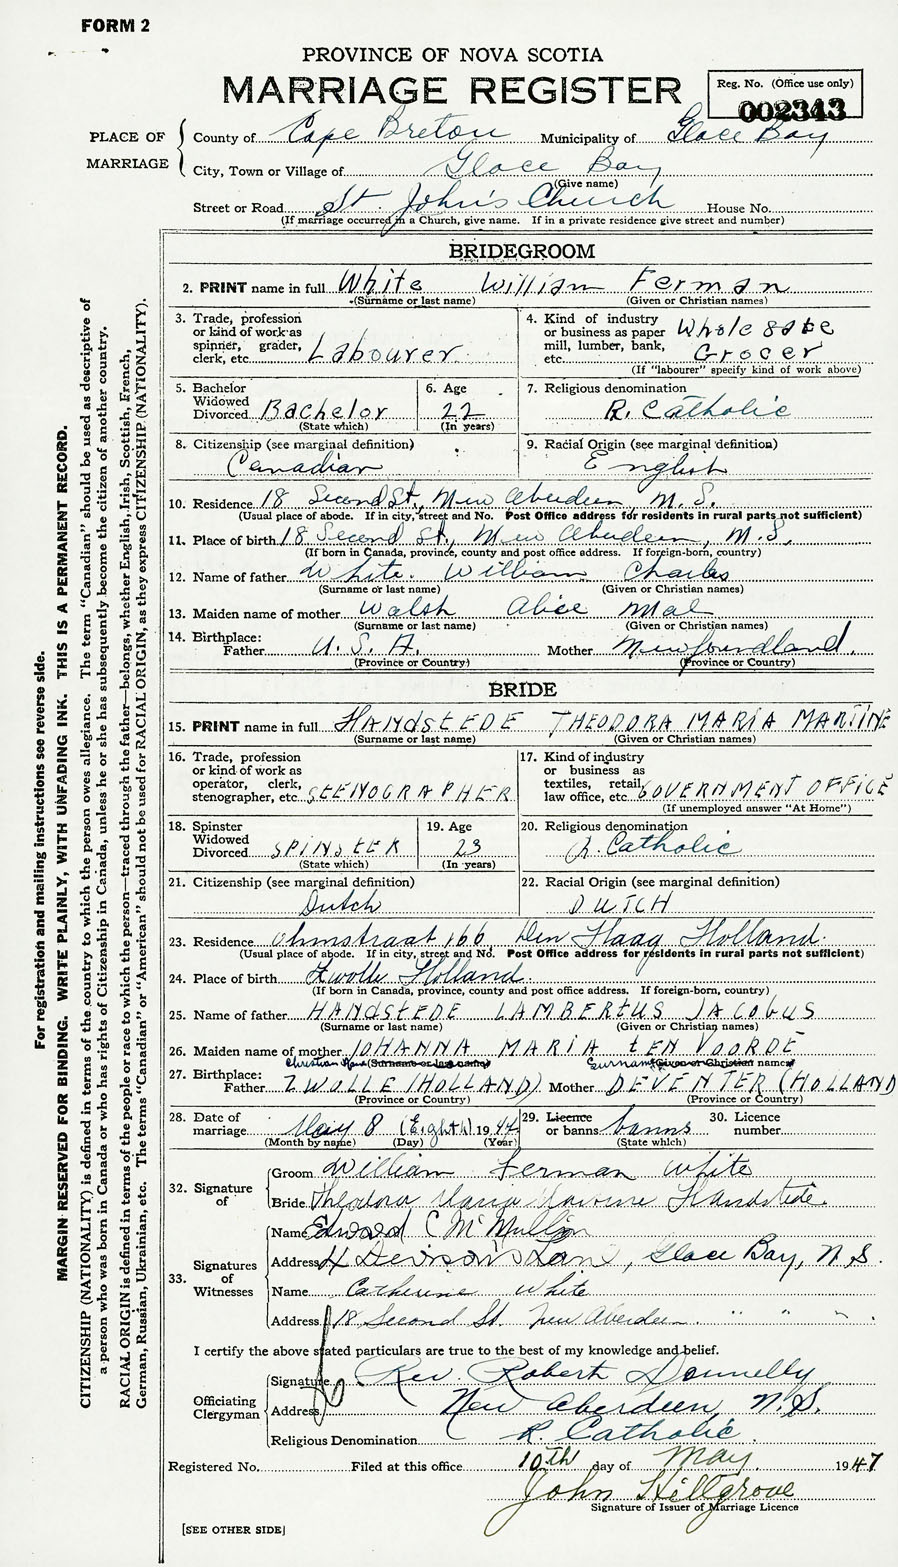 FORM 2
PROVINCE OF NOVA SCOTIA
MARRIAGE REGISTER
Reg. No. (Office use only)
002343
PLACE OF MARRIAGE
County of Cape Breton Municipality of Glace Bay
City, Town or Village of Glace Bay
(Give name)
Street or Road St. John's Church House No.
(If marriage occurred in a Church, give name. If in a private residence give street and number)
BRIDEGROOM
2. PRINT name in full White William Ferman
(Surname or last name) (Given or Christian names)
3. Trade, profession or kind of work as spinner, grader, clerk, etc. Labourer
4. Kind of industry or business as paper mill, lumber, bank, etc. Wholesale Grocer
(If "labourer" specify kind of work above)
5. Bachelor Widowed Divorced Bachelor
(State which)
6. Age 22
(In years)
7. Religious denomination R. Catholic
8. Citizenship (see marginal definition) Canadian
9. Racial Origin (see marginal definition) English
10. Residence 18 Second St., New Aberdeen, N. S.
(Usual place of abode. If in city, street and No. Post Office address for residents in rural parts not sufficient)
11. Place of birth 18 Second St., New Aberdeen, N. S.
(If born in Canada, province, county and post office address. If foreign-born, country)
12. Name of father White. William Charles
(Surname or last name) (Given or Christian names)
13. Maiden name of mother Walsh Alice Mae
(Surname or last name) (Given or Christian names)
14. Birthplace: Father U. S. A. Mother Newfoundland.
(Province or Country) (Province or Country)
BRIDE
15. PRINT name in full HANDSTEDE THEODORA MARIA MARTINE
(Surname or last name) (Given or Christian names)
16. Trade, profession or kind of work as operator, clerk, stenographer, etc. STENOGRAPHER
17. Kind of industry or business as textiles, retail, law office, etc. GOVERNMENT OFFICE
(If unemployed answer "At Home")
18. Spinster Widowed Divorced SPINSTER
(State which)
19. Age 23
(In years)
20. Religious denomination R. Catholic
21. Citizenship (see marginal definition) Dutch
22. Racial Origin (see marginal definition) DUTCH
23. Residence Ohmstraat 166, Den Haag Holland.
(Usual place of abode. If in city, street and No. Post Office address for residents in rural parts not sufficient)
24. Place of birth Zwolle Holland.
(If born in Canada, province, county and post office address. If foreign-born, country)
25. Name of father HANDSTEDE LAMBERTUS JACOBUS
(Surname or last name) (Given or Christian names)
26. Maiden name of mother JOHANNA MARIA tEN VOORDE
Christian Name (Surname or last name) Surname (Given or Christian names)
27. Birthplace: Father ZWOLLE (HOLLAND) Mother DEVENTER (HOLLAND
(Province or Country) (Province or Country)
28. Date of marriage May 8 (Eighth) 1947
(Month by name) (Day) (Year)
29. Licence or banns banns
(State which)
30. Licence number
32. Signature of
Groom William Ferman White
Bride Theodora Maria Martine Handstede.
33. Signatures of Witnesses
Name Edward C McMullin
Address Lane, Glace Bay, N. S.
Name Catherine White
Address 18 Second St. New Aberdeen. " " " .
I certify the above stated particulars are true to the best of my knowledge and belief.
Officiating Clergyman
Signature Rev. Robert Donnelly
Address New Aberdeen, N. S.
Religious Denomination R. Catholic.
Registered No. Filed at this office 10th day of May 1947
John Hillgrove
Signature of Issuer of Marriage Licence
[SEE OTHER SIDE]
For registration and mailing instructions see reverse side.
MARGIN RESERVED FOR BINDING. WRITE PLAINLY, WITH UNFADING INK. THIS IS A PERMANENT RECORD.
CITIZENSHIP (NATIONALITY) is defined in terms of the country to which the person owes allegiance. The term "Canadian" should be used as descriptive of
a person who was born in Canada or who has rights of Citizenship in Canada, unless he or she has subsequently become the citizen of another country.
RACIAL ORIGIN is defined in terms of the people or race to which the person—traced through the father—belongs, whether English, Irish, Scottish, French,
German, Russian, Ukrainian, etc. The terms "Canadian" or "American" should not be used for RACIAL ORIGIN, as they express CITIZENSHIP (NATIONALITY).